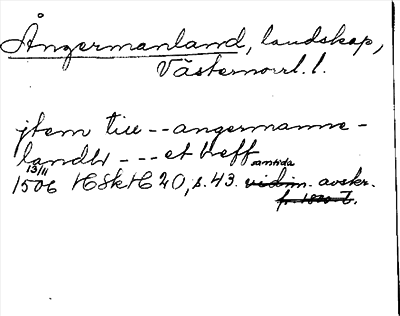 Ångermanland, landskap,
Västernorrl. l.
jtem till -- angermanne-
landh - -- et breff
13/11 samtida
1506 HSkH 20, s. 43. vidim. avskr.
fr. 1800-t.